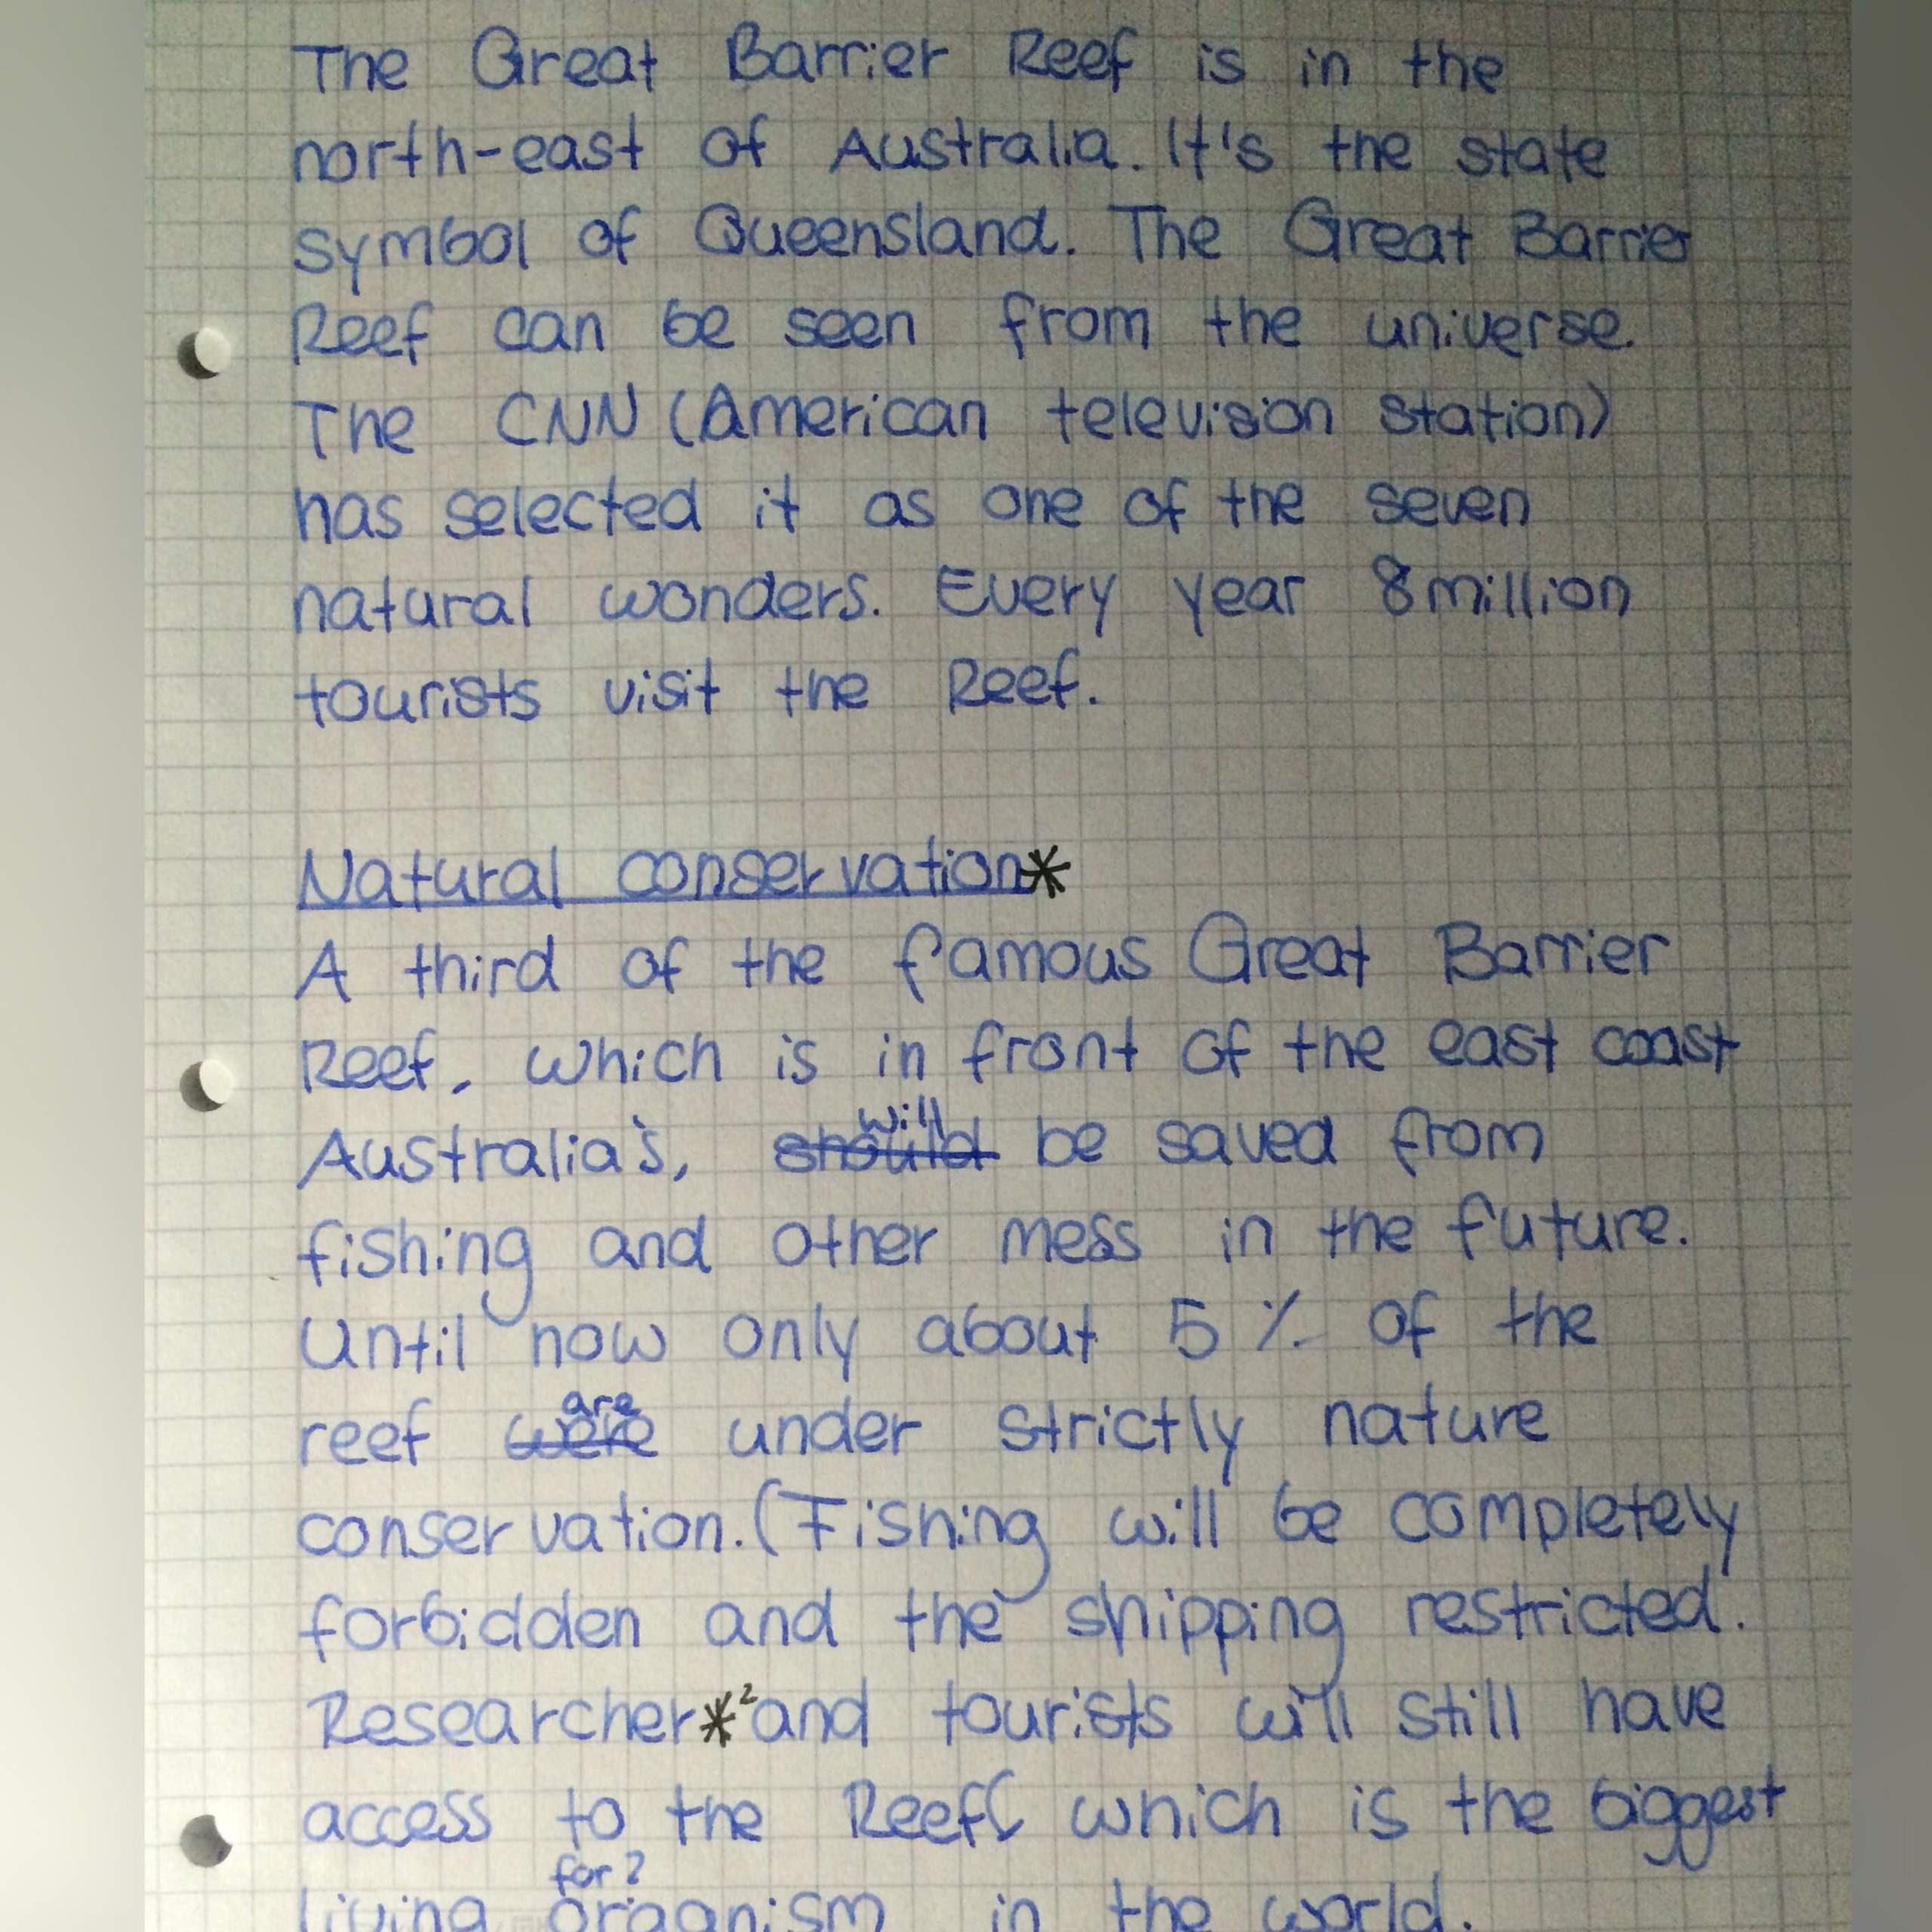 The Great Barrier Reef is in the
north-east of Australia. It's the state
symbol of Queensland. The Great Barrier
Reef can be seen from the universe.
The CNN (American television station)
has selected it as one of the seven
natural wonders. Every year 8 million
tourists visit the Reef.
Natural conservation*
A third of the famous Great Barrier
Reef, which is in front of the east coast
will
Australia's, should be saved from
fishing and other mess in the future.
Until now only about 5 % of the
are
reef were under strictly nature
conservation. (Fishing will be completely
forbidden and the shipping restricted.
Researcher*² and tourists will still have
access to the Reef( which is the biggest
for?
living organism in the world.